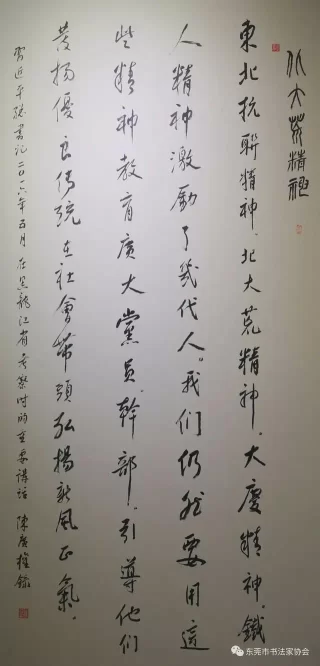 北大荒精神
東北抗聯精神、北大荒精神、大慶精神、鐵
人精神激勵了幾代人。我们仍然要用這
些精神教育廣大黨员、幹部,引導他们
發揚優良傳统,在社會带頭弘揚新風正氣。
习近平總書记二〇一六年五月在黑龍江省考察时的重要講话 陳
东莞市书法家协会